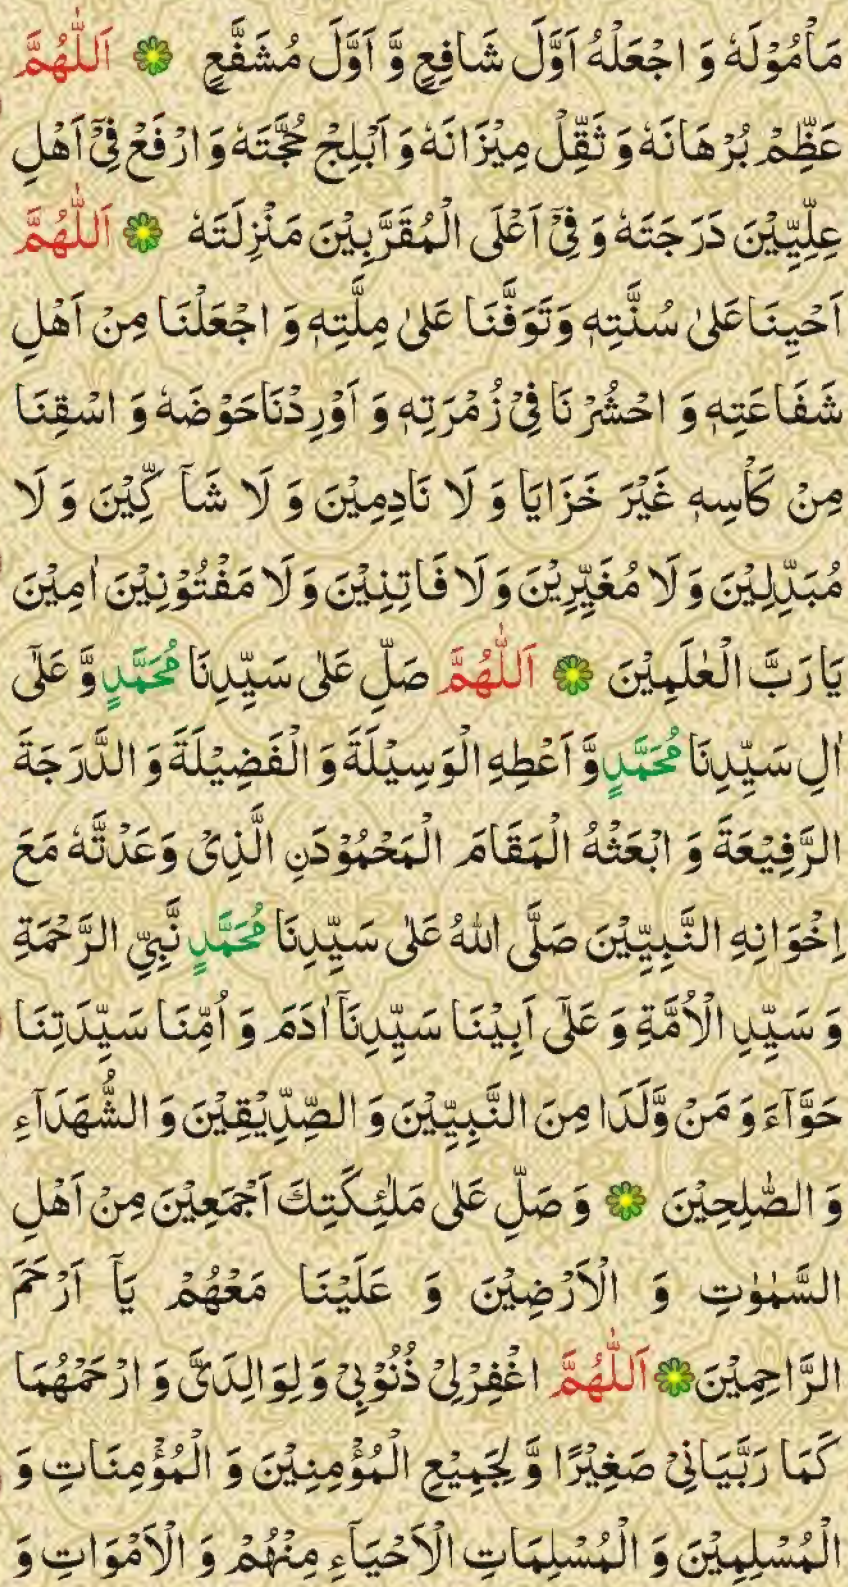 مَاْمُوْلَهٗ وَ اجْعَلْهُ اَوَّلَ شَافِعٍ وَّ اَوَّلَ مُشَفَّعٍ اَللّٰهُمَّ
عَظِّمْ بُرْهَانَهٗ وَ ثَقِّلْ مِيْزَانَهٗ وَ اَبْلِجْ حُجَّتَهٗ وَ ارْفَعْ فِيْٓ اَهْلِ
عِلِّيِّيْنَ دَرَجَتَهٗ وَ فِيْٓ اَعْلَى الْمُقَرَّبِيْنَ مَنْزِلَتَهٗ اَللّٰهُمَّ
اَحْيِنَا عَلٰى سُنَّتِهٖ وَتَوَفَّنَا عَلٰى مِلَّتِهٖ وَ اجْعَلْنَا مِنْ اَهْلِ
شَفَاعَتِهٖ وَ احْشُرْنَا فِيْ زُمْرَتِهٖ وَ اَوْرِدْنَا حَوْضَهٗ وَ اسْقِنَا
مِنْ كَاْسِهٖ غَيْرَ خَزَايَا وَ لَا نَادِمِيْنَ وَ لَا شَآ كِّيْنَ وَ لَا
مُبَدِّلِيْنَ وَ لَا مُغَيِّرِيْنَ وَ لَا فَاتِنِيْنَ وَ لَا مَفْتُوْنِيْنَ اٰمِيْنَ
يَا رَبَّ الْعٰلَمِيْنَ اَللّٰهُمَّ صَلِّ عَلٰى سَيِّدِنَا مُحَمَّدٍ وَّ عَلٰٓى
اٰلِ سَيِّدِنَا مُحَمَّدٍ وَّ اَعْطِهِ الْوَسِيْلَةَ وَ الْفَضِيْلَةَ وَ الدَّرَجَةَ
الرَّفِيْعَةَ وَ ابْعَثْهُ الْمَقَامَ الْمَحْمُوْدَنِ الَّذِىْ وَعَدْتَّهٗ مَعَ
اِخْوَانِهِ النَّبِيِّيْنَ صَلَّى اللهُ عَلٰى سَيِّدِنَا مُحَمَّدٍ نَّبِيِّ الرَّحْمَةِ
وَ سَيِّدِ الْاُمَّةِ وَ عَلٰٓى اَبِيْنَا سَيِّدِنَآ اٰدَمَ وَ اُمِّنَا سَيِّدَتِنَا
حَوَّآءَ وَ مَنْ وَّلَدَا مِنَ النَّبِيِّيْنَ وَ الصِّدِّيْقِيْنَ وَ الشُّهَدَآءِ
وَ الصّٰلِحِيْنَ وَ صَلِّ عَلٰى مَلٰئِكَتِكَ اَجْمَعِيْنَ مِنْ اَهْلِ
السَّمٰوٰتِ وَ الْاَرْضِيْنَ وَ عَلَيْنَا مَعْهُمْ يَآ اَرْحَمَ
الرَّاحِمِيْنَ اَللّٰهُمَّ اغْفِرْلِىْ ذُنُوْبِىْ وَ لِوَالِدَىَّ وَ ارْحَمْهُمَا
كَمَا رَبَّيَانِىْ صَغِيْرًا وَّ لِجَمِيْعِ الْمُؤْمِنِيْنَ وَ الْمُؤْمِنَاتِ وَ
الْمُسْلِمِيْنَ وَ الْمُسْلِمَاتِ الْاَحْيَآءِ مِنْهُمْ وَ الْاَمْوَاتِ وَ